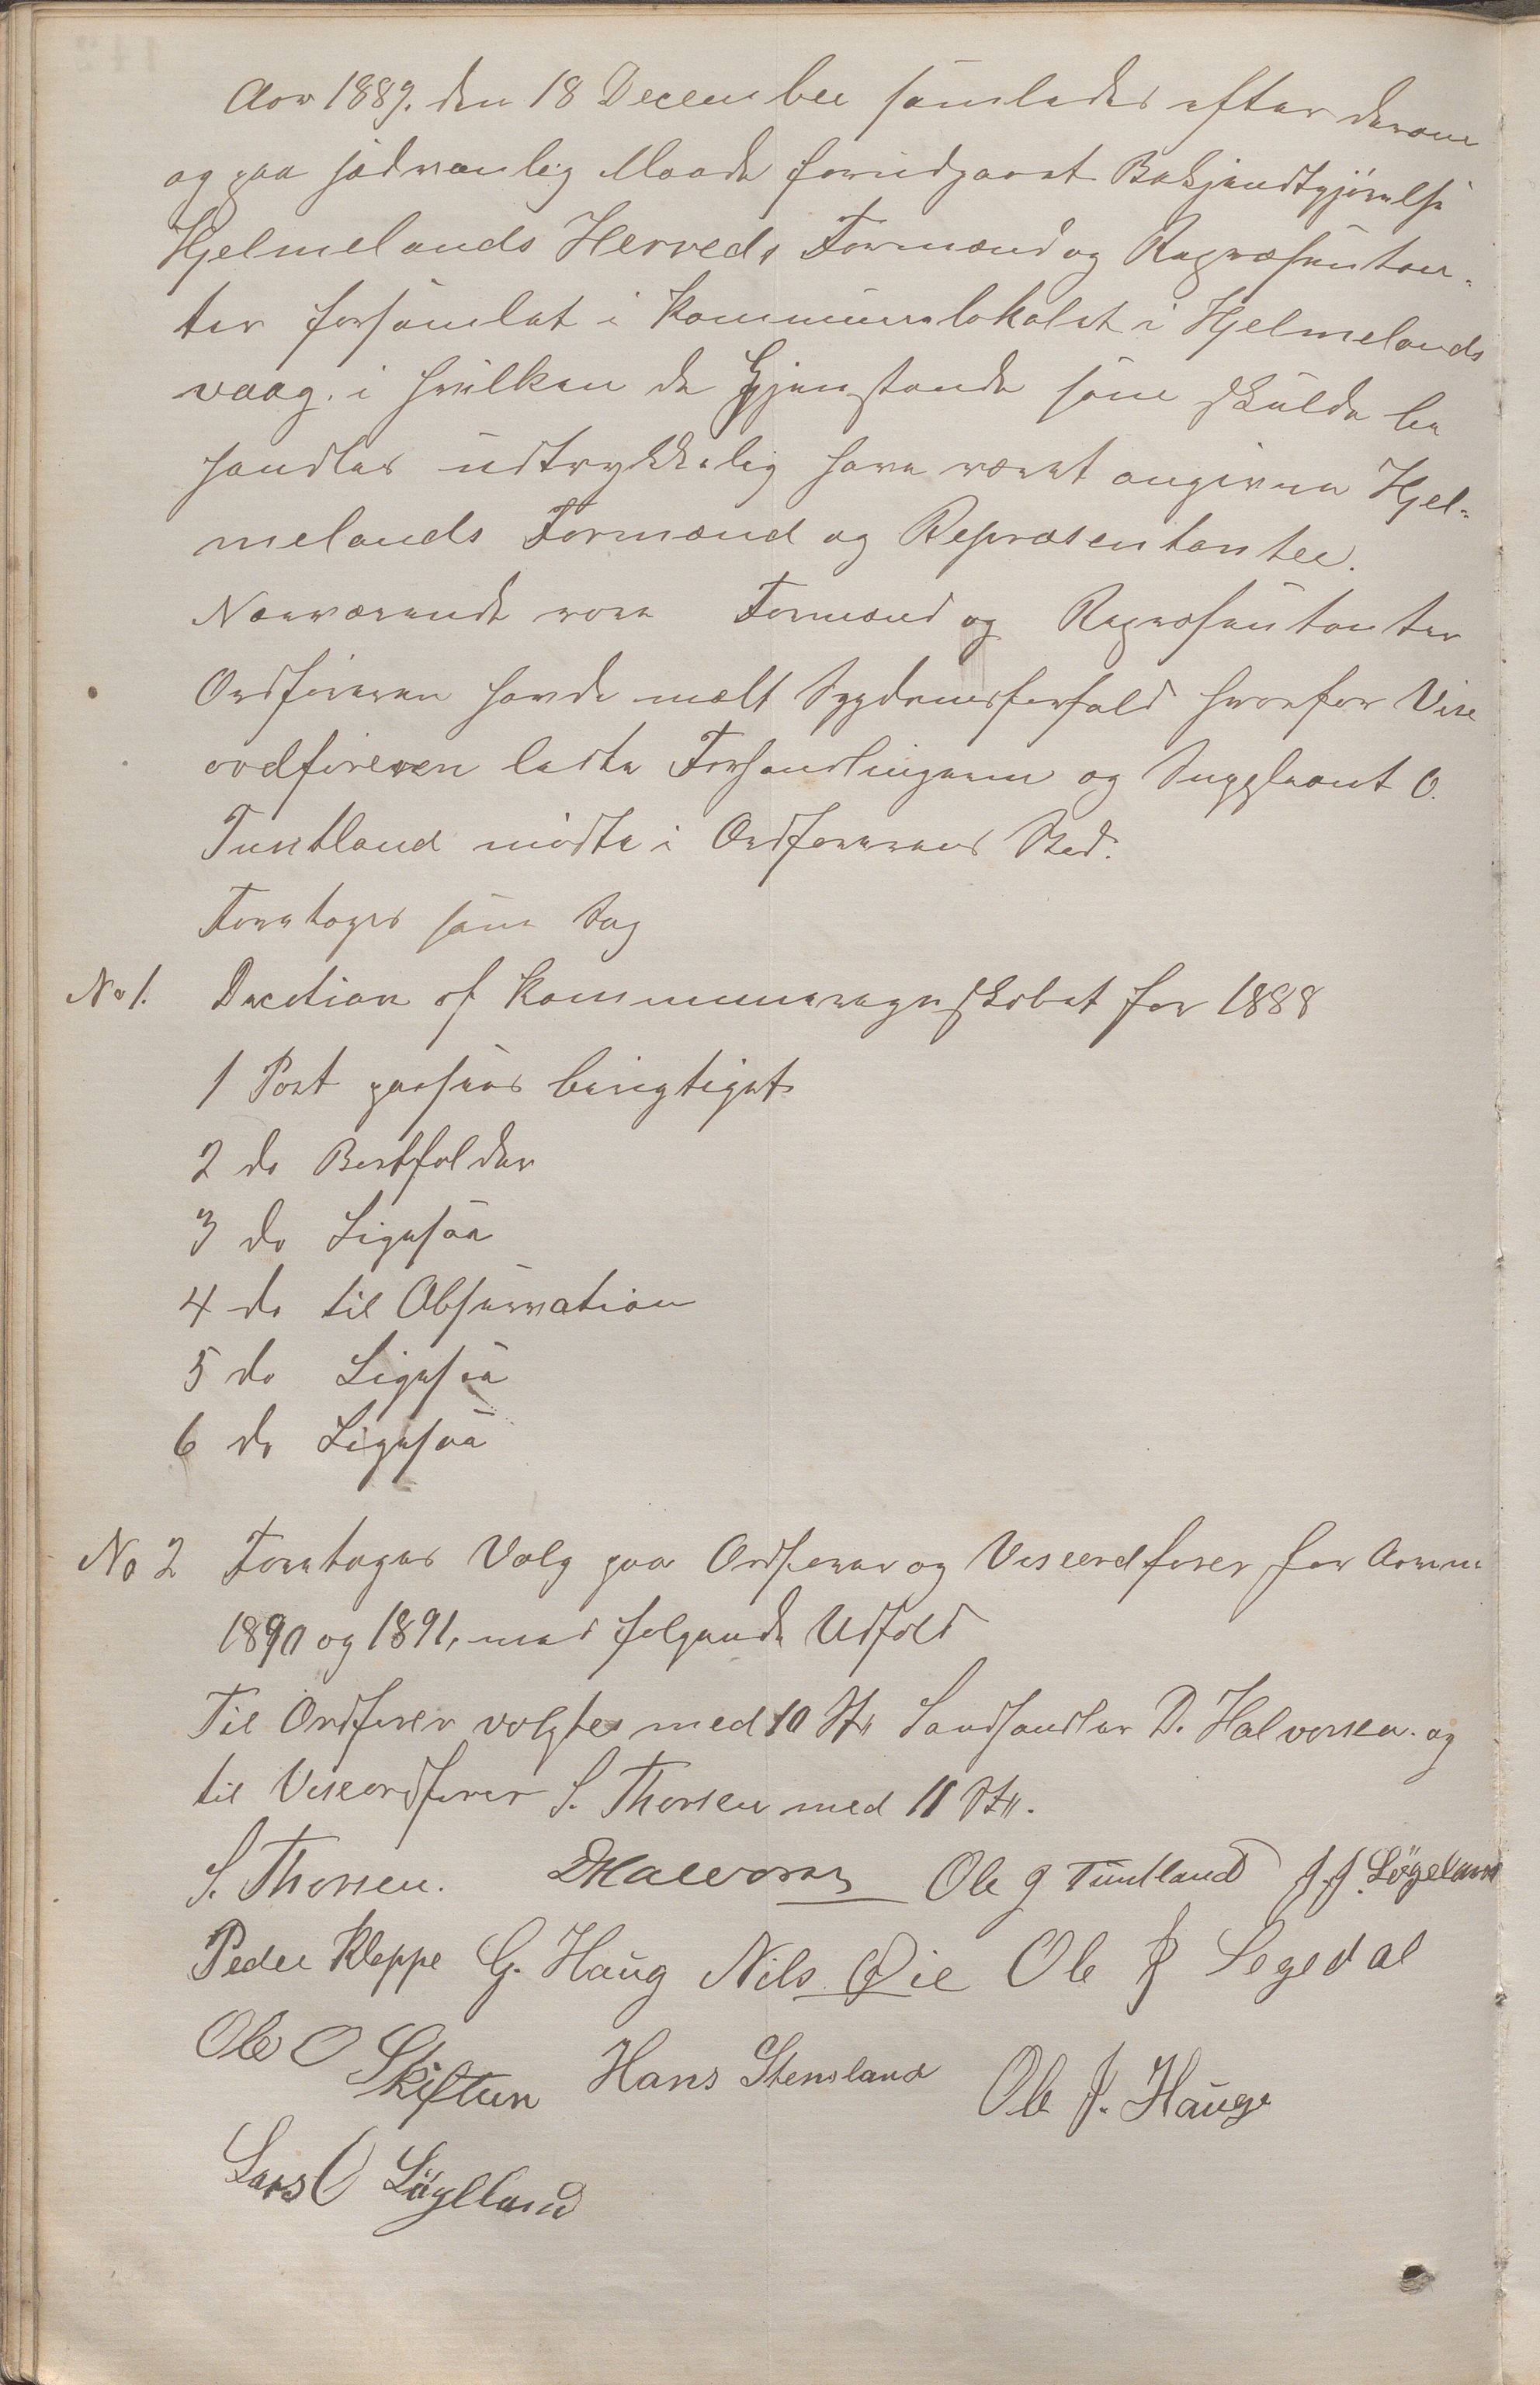 Aar 1889. den 18 December samledes efter derom
og paa sædvanlig Maade foridgaaet Bekjendtgjörelse
Hjelmelands Herreds Formænd og Repræsentan-
ter forsamlet i Kommunelokalet i Hjelmelands
vaag. i hvilken de Gjenstande som skulde be
handles udtrykkelig have været angivne Hjel-
melands Formænd og Repræsentanter.
Nærværende vare Formænd og Repræsentanter
Ordføreren havde mælt Sygdomsforfald hvorfor Vise
ordføreren ledte Forhandlingerne og Suppleant O.
Tuntland mødte i Ordførerens Sted.
Foretoges som Sag
No 1. Decition af Kommuneregnskabet for 1888
1 Post passeres berigtiget
2 do Bortfalder
3 do Ligesaa
4 do til Observation
5 do Ligesaa
6 do Ligesaa
No 2 Foretoges Valg paa Ordfører og Viseordfører for Aarene
1890 og 1891, med følgende Udfald
Til Ordfører valgtes med 10 Str Landhandler D. Halvorsen. og
til Viseordfører S. Thorsen med 11 Str.
S. Thorsen. DHalvorsen Ole G Tuntland J. J. Lögeland
Peder Kleppe G. Haug Nils Øie Ole J Segedal
Ole O Skiftun Hans Stensland Ole J. Hauge
Lars O Löylland